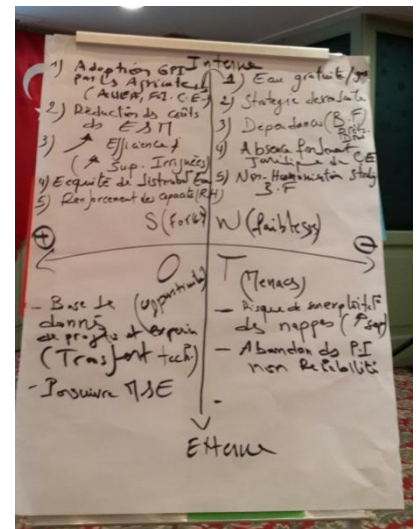 Interne
1) Adoption GPI
par les Agriculteurs
(AUEA, F.I. C.E)
2) Réduction des coûts
de E&M
3) ↗ Efficience
(↗ Sup. Irriguées)
4) Equité de distribut Eau
5) Renforcement des capacités (RH)
S (Forces)
1) Eau gratuite
2) Stratégie descendante
3) Dependance (B.F)
4) Absence fondement
Juridique de C.E
5) Non-Harmonisation Study
B.F
W (faiblesses)
+
-
O
(opportunités)
- Base de
donnés
de projets et experien
(Transfert tech.)
- Poursuivre MSE
T
(Menaces)
- Risque de surexploitat°
des nappes (↗ sup)
- Abandon des P.I
non Reliabilité
-
Externe